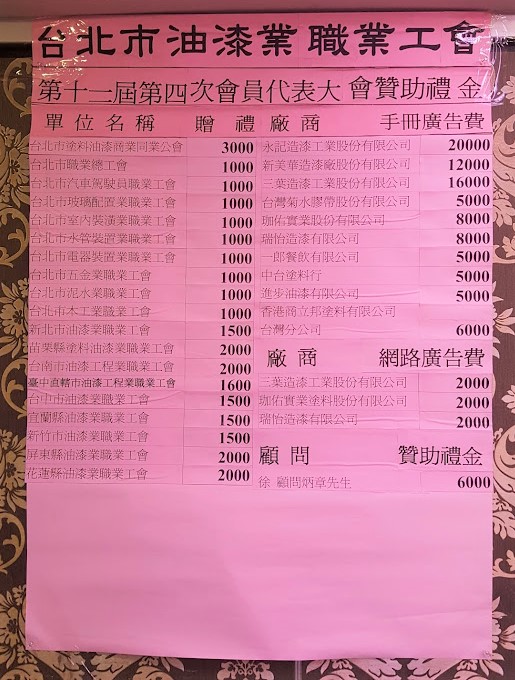 台北市油漆業職業工會
第十二屆第四次會員代表大會贊助禮金
單位名稱 贈禮
台北市塗料油漆商業同業公會 3000
台北市職業總工會 1000
台北市汽車駕駛員職業工會 1000
台北市玻璃配置業職業工會 1000
台北市室內裝潢業職業工會 1000
台北市水管裝置業職業工會 1000
台北市電器裝置業職業工會 1000
台北市五金業職業工會 1000
台北市泥水業職業工會 1000
台北市木工業職業工會 1000
新北市油漆業職業工會 1500
苗栗縣塗料油漆業職業工會 2000
台南市油漆工程業職業工會 2000
臺中直轄市油漆工程業職業工會 1600
台中市油漆業職業工會 1500
宜蘭縣油漆業職業工會 1500
新竹市油漆業職業工會 1500
屏東縣油漆業職業工會 2000
花蓮縣油漆業職業工會 2000
廠商 手冊廣告費
永記造漆工業股份有限公司 20000
新美華造漆廠股份有限公司 12000
三葉造漆工業股份有限公司 16000
台灣菊水膠帶股份有限公司 5000
珈佑實業股份有限公司 8000
瑞怡造漆有限公司 8000
一郎餐飲有限公司 5000
中台塗料行 5000
進步油漆有限公司 5000
香港商立邦塗料有限公司
台灣分公司 6000
廠商 網路廣告費
三葉造漆工業股份有限公司 2000
珈佑實業塗料股份有限公司 2000
瑞怡造漆有限公司 2000
顧問 贊助禮金
徐 顧問炳章先生 6000